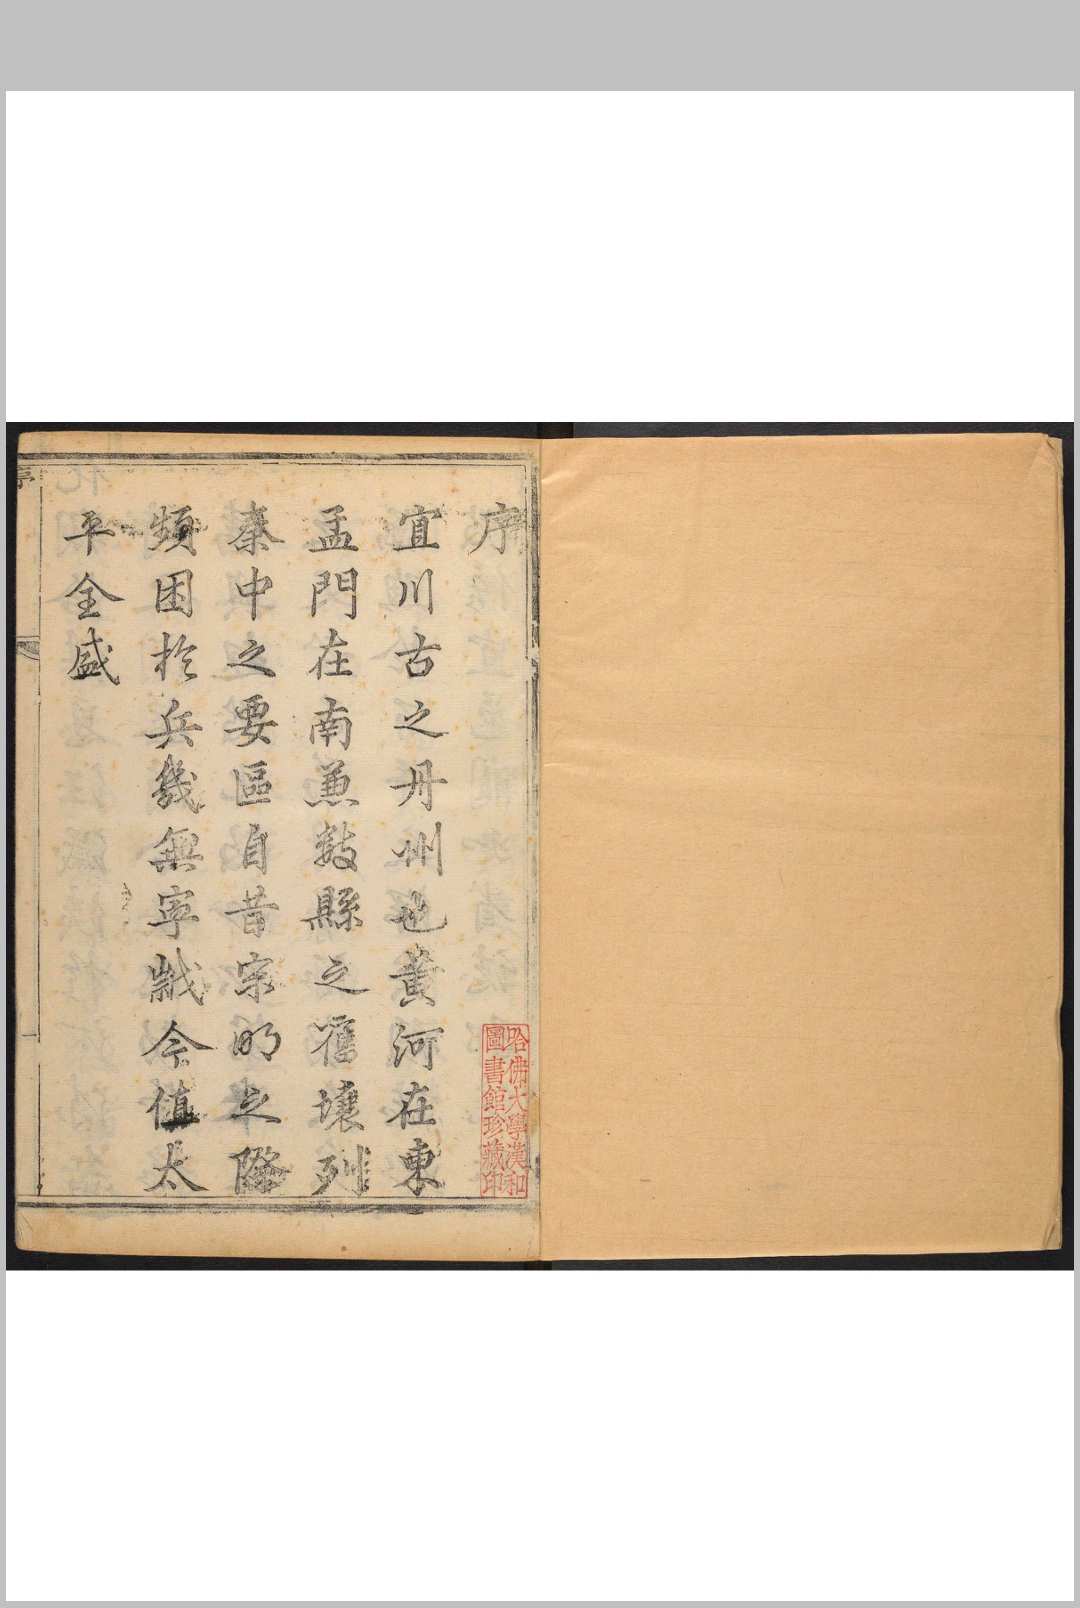 序
宜川古之丹州也黃河在東
孟門在南兼數縣之舊壤列
秦中之要區自昔宗明之際
頻困於兵幾無寧歲今值太
平全盛
哈佛大學漢和
圖書館珍藏印
序